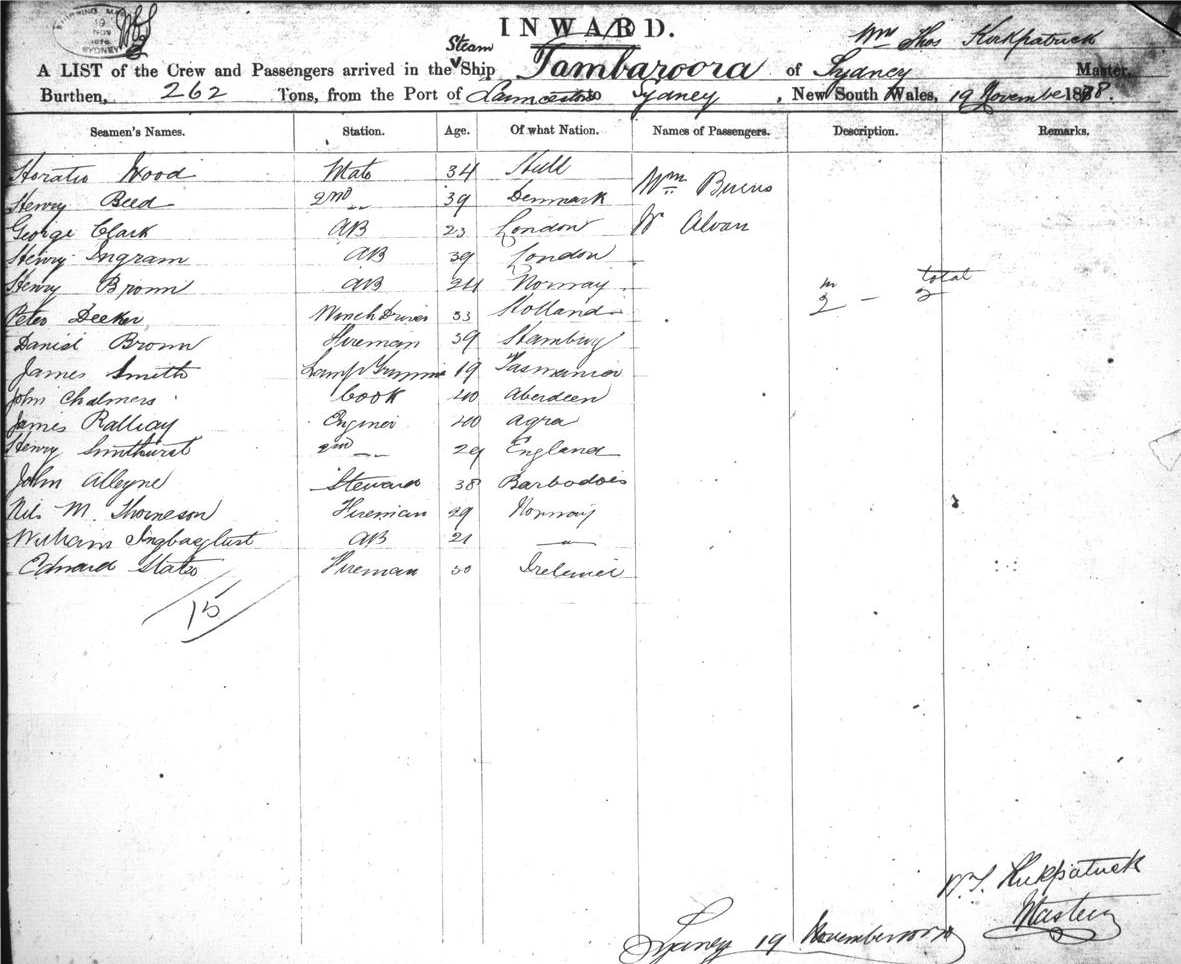 SHIPPING MA
19
NOV
1878
SYDNEY
INWARD.
Wm Thos Kirkpatrick
A LIST of the Crew and Passengers arrived in the Steam Ship Tambaroora of Sydney Master,
Burthen, 262 Tons, from the Port of Launceston to Sydney, New South Wales, 19 November 1878.
Seamen's Names. Station. Age. Of what Nation. Names of Passengers. Description. Remarks.
Horatio Wood Mate 34 Hull
Wm Burns
Henry Beed 2nd " 39 Denmark
George Clark AB 23 London W Alvan
Henry Ingram AB 39 London
Henry Brown AB 24 Norway
m total
2 - 2
Peter Decker Winch Driver 33 Holland
Daniel Brown Fireman 39 Hamburg
James Smith Lamp Trimmer 19 Tasmania
John Chalmers Cook 40 Aberdeen
James Engineer 40 Agra
Henry Smithurst 2nd " 29 England
John Alleyne Steward 38 Barbadois
Nils M. Thorneson Fireman 29 Norway
William AB 21 "
Edward Fireman 30 Ireland
15
W. T. Kirkpatrick
Master
Sydney 19 November 1878